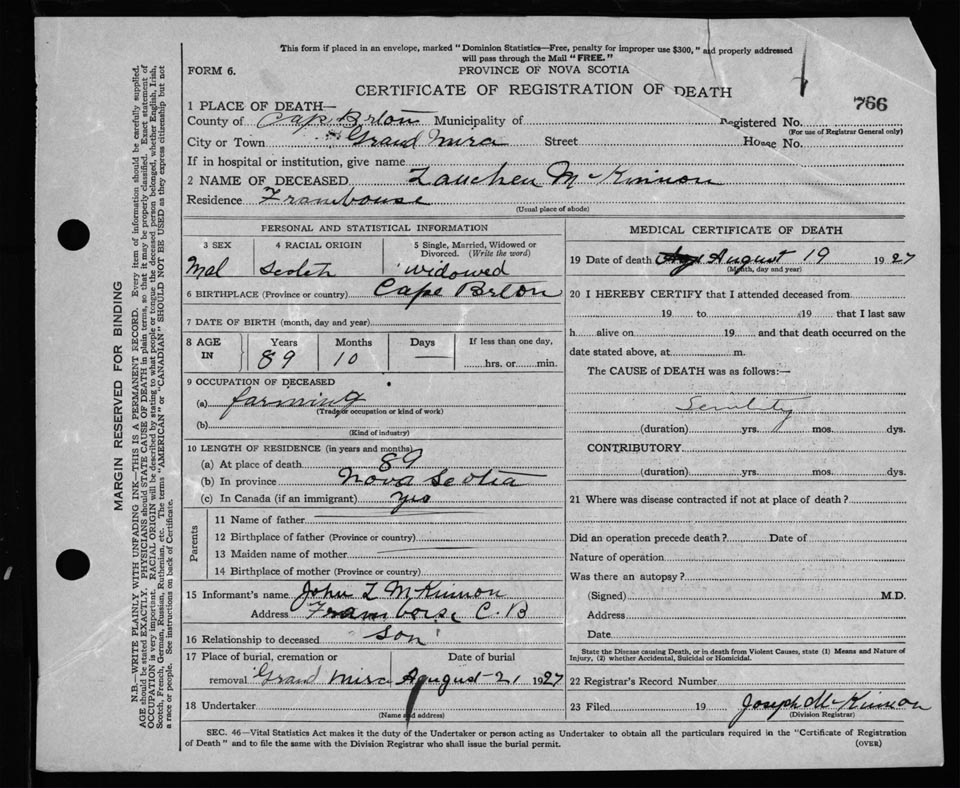 This form if placed in an envelope, marked "Dominion Statistics—Free, penalty for improper use $300," and properly addressed
will pass through the Mail "FREE."
FORM 6.
PROVINCE OF NOVA SCOTIA
CERTIFICATE OF REGISTRATION OF DEATH
766
1 PLACE OF DEATH—
County of Cape Brton Municipality of Registered No.
(For use of Registrar General only)
City or Town Grand Mira Street House No.
If in hospital or institution, give name
2 NAME OF DECEASED Lauchen McKinnon
Residence Frambouse
(Usual place of abode)
PERSONAL AND STATISTICAL INFORMATION
3 SEX 4 RACIAL ORIGIN 5 Single, Married, Widowed or
Divorced. (Write the word)
Mal Scotch widowed
6 BIRTHPLACE (Province or country) Cape Brton
7 DATE OF BIRTH (month, day and year)
8 AGE IN Years Months Days If less than one day,
89 10 — hrs. or min.
9 OCCUPATION OF DECEASED
(a) farming
(Trade or occupation or kind of work)
(b)
(Kind of industry)
10 LENGTH OF RESIDENCE (in years and months)
(a) At place of death 89
(b) In province Nova Scotia
(c) In Canada (if an immigrant) yes
Parents
11 Name of father
12 Birthplace of father (Province or country)
13 Maiden name of mother
14 Birthplace of mother (Province or country)
15 Informant's name John L McKinnon
Address Framboise C. B
16 Relationship to deceased son
17 Place of burial, cremation or Date of burial
removal Grand Mira August 21 1927
18 Undertaker
(Name and address)
MEDICAL CERTIFICATE OF DEATH
19 Date of death August 19 1927
(Month, day and year)
20 I HEREBY CERTIFY that I attended deceased from
19 to 19 that I last saw
h alive on 19 and that death occurred on the
date stated above, at m.
The CAUSE of DEATH was as follows:—
Senility
(duration) yrs. mos. dys.
CONTRIBUTORY
(duration) yrs. mos. dys.
21 Where was disease contracted if not at place of death?
Did an operation precede death? Date of
Nature of operation
Was there an autopsy?
(Signed) M.D.
Address
Date
State the Disease causing Death, or in death from Violent Causes, state (1) Means and Nature of
Injury, (2) whether Accidental, Suicidal or Homicidal.
22 Registrar's Record Number
23 Filed 19 Joseph McKinnon
(Division Registrar)
SEC. 46—Vital Statistics Act makes it the duty of the Undertaker or person acting as Undertaker to obtain all the particulars required in the "Certificate of Registration
of Death" and to file the same with the Division Registrar who shall issue the burial permit.
(OVER)
MARGIN RESERVED FOR BINDING
N.B.—WRITE PLAINLY WITH UNFADING INK—THIS IS A PERMANENT RECORD. Every item of information should be carefully supplied.
AGE should be stated EXACTLY. PHYSICIANS should STATE CAUSE OF DEATH in plain terms, so that it may be properly classified. Exact statement of
OCCUPATION is very important. RACIAL ORIGIN will be described by stating to what people or tongue the deceased person belonged, whether English, Irish,
Scotch, French, German, Russian, Ruthenian, etc. The terms "AMERICAN" or "CANADIAN" SHOULD NOT BE USED as they express citizenship but not
a race or people. See instructions on back of Certificate.